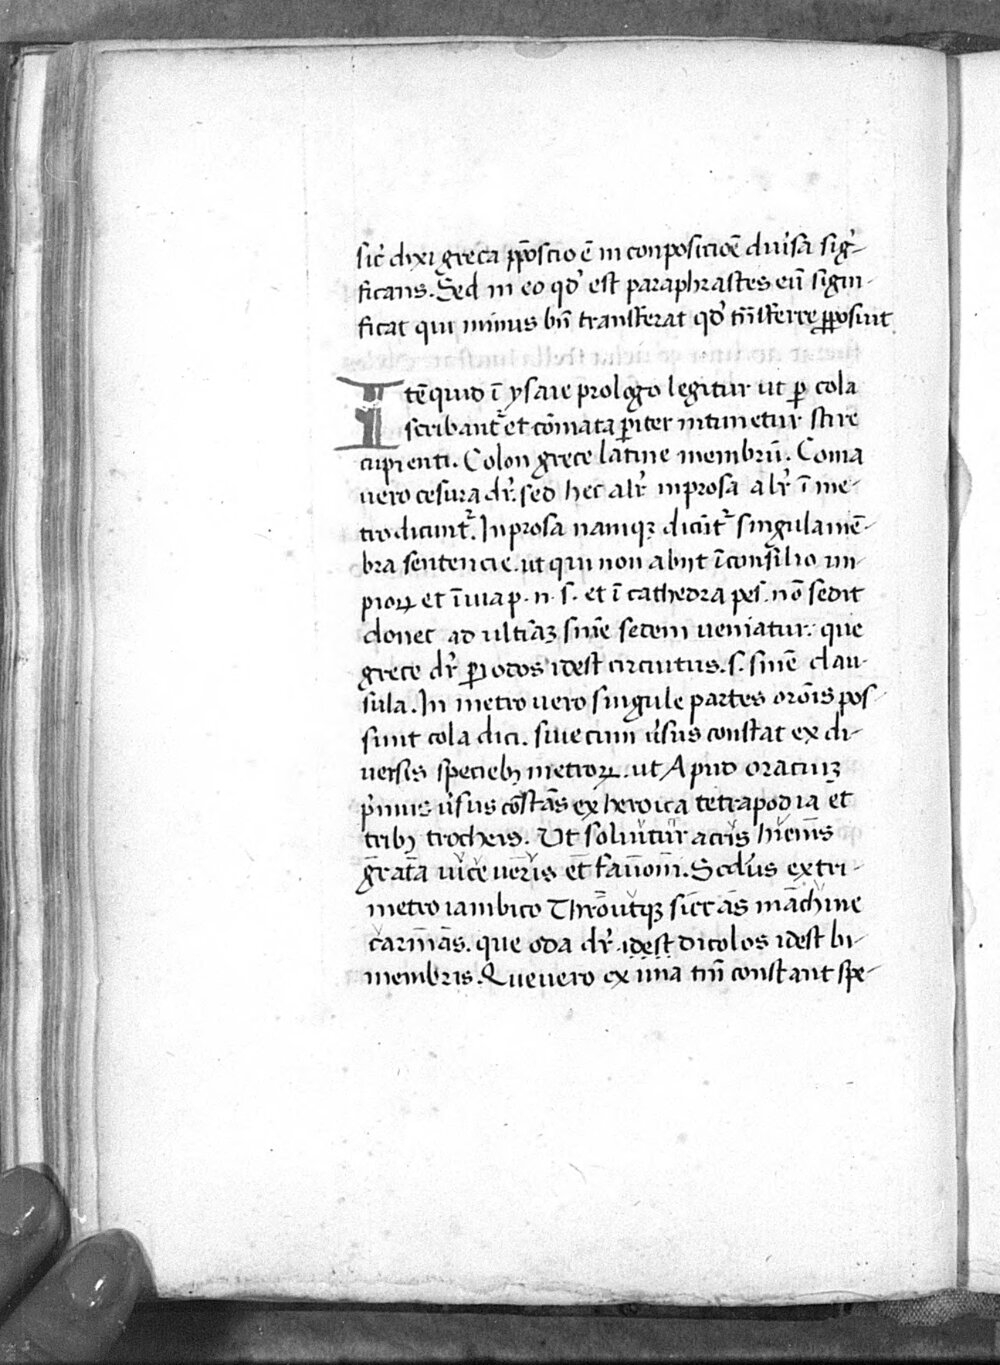 sic̄ dixi greca p̄posicio ē in conposicioē diu̾sa sig̾-
ficans. Sed in eo qd̾ est paraphrastes eū sigin-
ficat qui minus bn̄ transferat qd̾ trāsferre p̱posuit
Itē quid ī ysaie prologo legitur ut ꝑ cola
scribant᷑ et cōmata ꝑiter intimetur scire
cupienti. Colon grece latine membrū. Coma
uero cesura dr̄. sed hec alr̄ in prosa alr̄ ī me-
tro dicunt᷑. In prosa namqꝫ dicūt᷑ singula mē-
bra sentencie. ut qui non abiit ī consilio im-
pioꝝ et ī uia p. n. s. et ī cathedra pes̄. nō sedit
donec ad ultīaꝫ sn̄ie sedem ueniatur. que
grece dr̄ ꝑiodos idest circuitus. s. sn̄ie clau-
sula. In metro uero singule partes orōis pos-
sunt cola dici. siue cum u̾sus constat ex di-
uersis specieb; metroꝝ. ut Apud oraciuꝫ
p̾mus u̾sus cōstās ex heroica tetrapodia et
trib; trocheis. Ut soluitur acris hiem̄s
grata uice ueris et fauoni. Scd̾us ex tri-
metro iambico Thrōutqꝫ siccas machine
carinas. que oda dr̄ idest dicolos idest bi-
membris. Que uero ex una tm̄ constant spe-